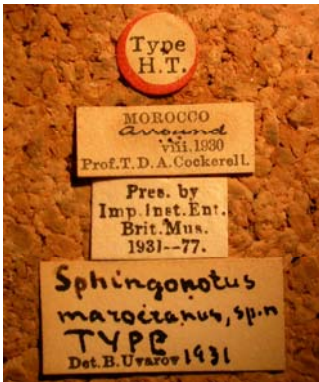 Type
H.T.
MOROCCO
Arround
viii.1930
Prof.T.D.A.Cockerell.
Pres. by
Imp.Inst.Ent.
Brit.Mus.
1931--77.
Sphingonotus
marocranus, sp.n
TYPE
Det.B.Uvarov 1931